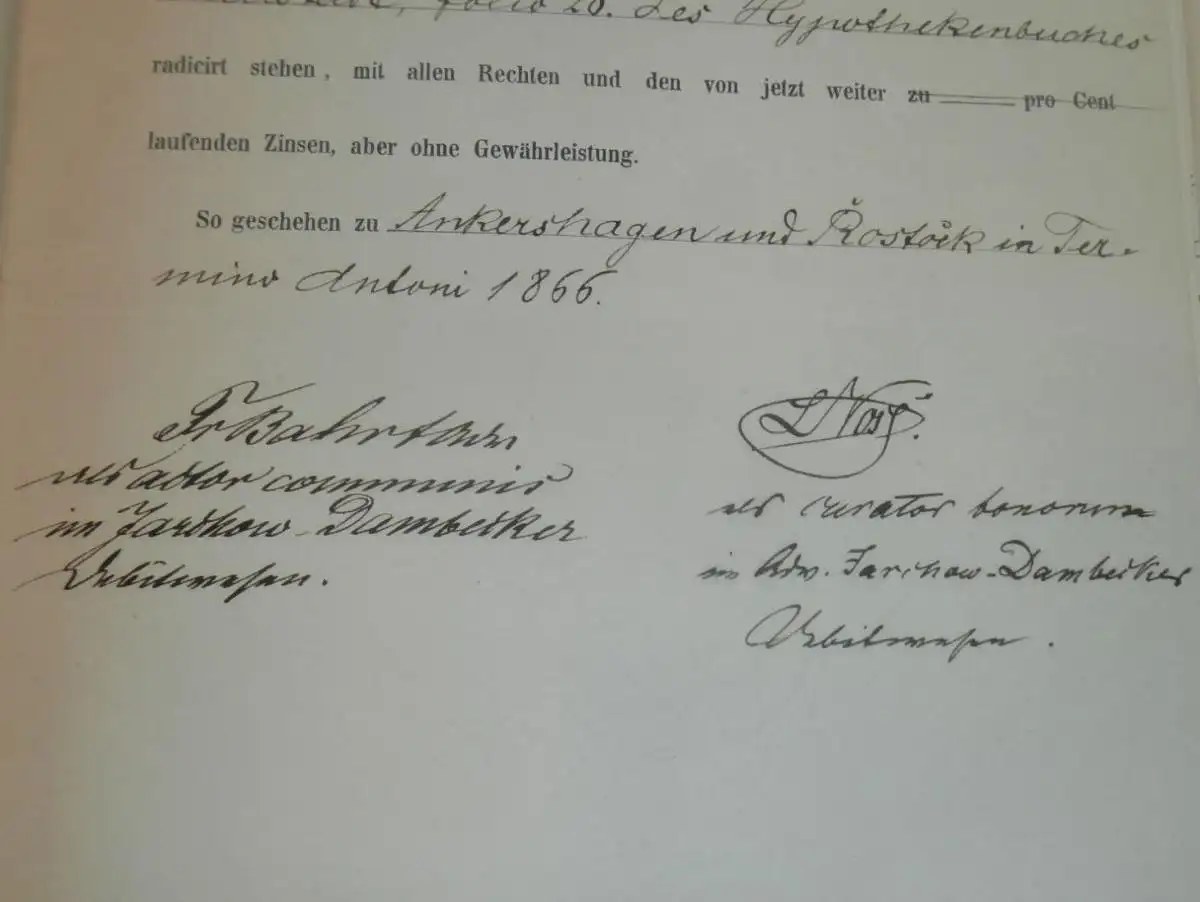 folio 20. des Hypothekenbuches
radicirt stehen, mit allen Rechten und den von jetzt weiter zu pro Cent
laufenden Zinsen, aber ohne Gewährleistung.
So geschehen zu Ankershagen und Rostock in Ter-
mino Antoni 1866.
Fr
als actor communis
im Jarchow-Dambecker
Debitwesen.
als curator bonorum
in Adv. Jarchow-Dambecker
Debitwesen.